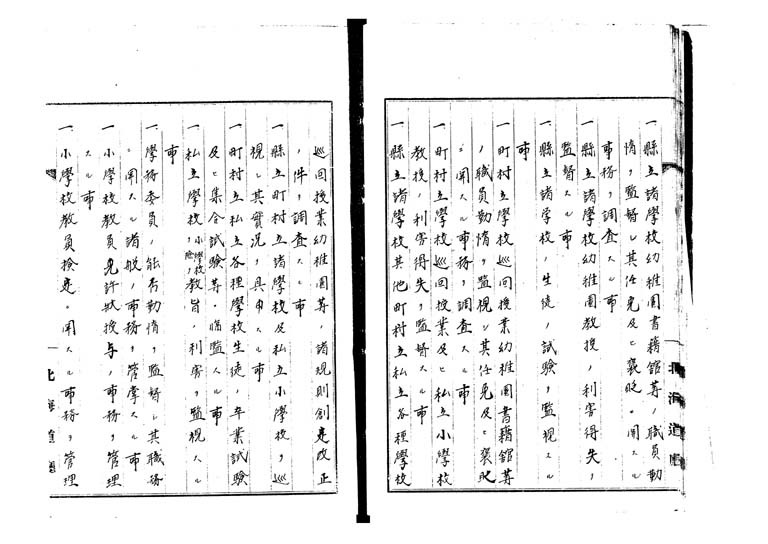 一縣立諸學校幼稚園書籍館等ノ職員勤
惰ヲ監督シ其任免及ヒ褒貶ニ関スル
事務ヲ調査スル事
一縣立諸學校幼稚園教授ノ利害得失ヲ
監督スル事
一縣立諸学校ノ生徒ノ試験ヲ監視スル
事
一町村立學校巡回授業幼稚園書籍館等
ノ職員勤惰ヲ監視シ其任免及ヒ褒貶
ニ関スル事務ヲ調査スル事
一町村立學校巡回授業及ヒ私立小學校
教授ノ利害得失ヲ監督スル事
一縣立諸學校其他町村立私立各種學校
巡回授業幼稚園等ノ諸規則創定改正
ノ件ヲ調査スル事
一縣立町村立諸學校及私立小學校ヲ巡
視シ其實況ヲ具申スル事
一町村立私立各種學校生徒ノ卒業試験
及ヒ集合試験等ニ臨監スル事
一私立學校ノ小學校ヲ除ク教旨ノ利害ヲ監視スル
事
一學務委員ノ能否勤惰ヲ監督シ其職務
ニ関スル諸般ノ事務ヲ管掌スル事
一小學校教員免許状授与ノ事務ヲ管理
スル事
一小學校教員検定ニ関スル事務ヲ管理
北海道廳